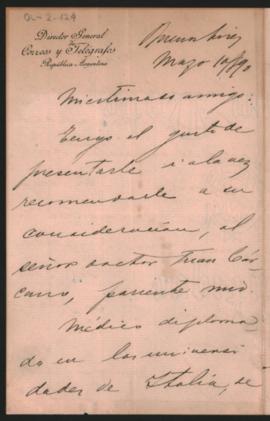 OL-2-124
Director General
de
Correos y Telégrafos
República Argentina
Buenos Aires
Mayo 10/90
Mi estimado amigo:
Tengo el gusto de
presentarle i a la vez
recomendarle a su
consideracion, al
señor doctor Juan Cár-
cano, pariente mio.
Médico diploma
do en las universi
dades de Italia, se